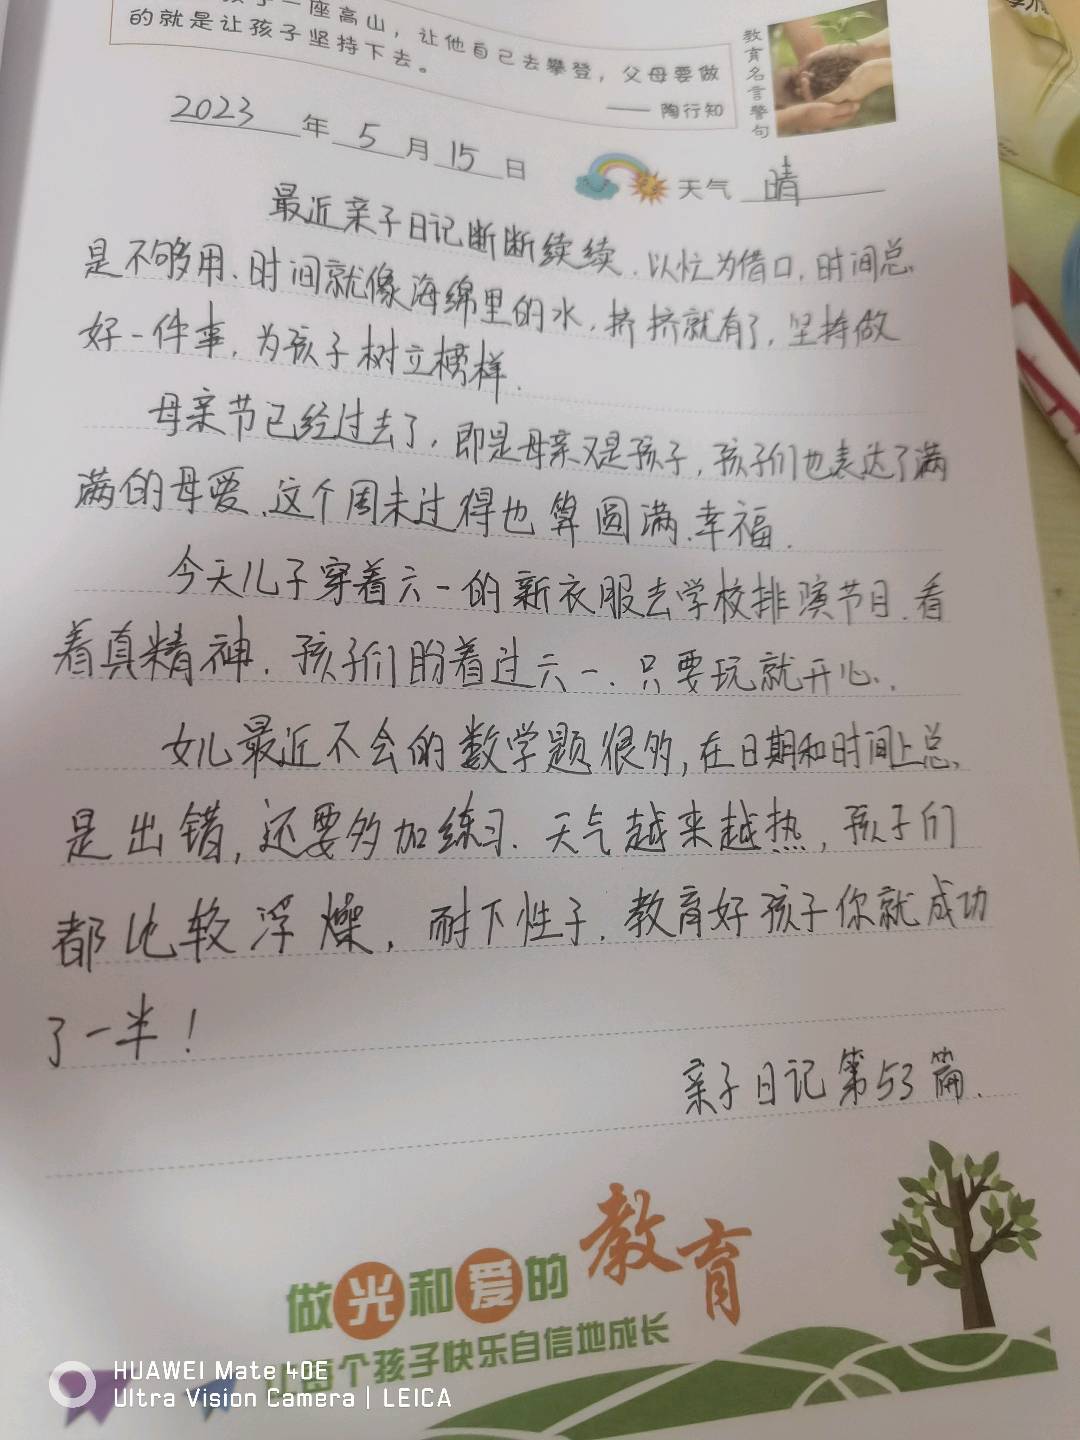 一座高山，让他自己去攀登，父母要做
的就是让孩子坚持下去。
—— 陶行知
教育名言警句
2023 年 5 月 15 日
天气 晴
最近亲子日记断断续续，以忙为借口，时间总
是不够用、时间就像海绵里的水，挤挤就有了，坚持做
好一件事，为孩子树立榜样．
母亲节已经过去了，即是母亲又是孩子，孩子们也表达了满
满的母爱、这个周末过得也算圆满．幸福．
今天儿子穿着六一的新衣服去学校排演节目．看
着真精神．孩子们盼着过六一．只要玩就开心．
女儿最近不会的数学题很多，在日期和时间上总
是出错，还要多加练习．天气越来越热，孩子们
都比较浮燥，耐下性子．教育好孩子你就成功
了一半！
亲子日记第53篇．
做光和爱的教育
个孩子快乐自信地成长
HUAWEI Mate 40E
Ultra Vision Camera | LEICA